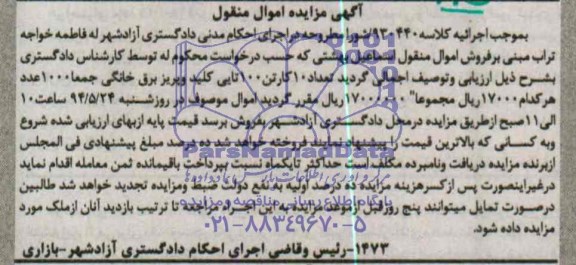 آگهی مزایده اموال منقول
بموجب اجرائیه کلاسه ۹۳۰۴۴۰شورا مطروحه دراجرای احکام مدنی دادگستری آزادشهر له فاطمه خواجه
تراب مبنی برفروش اموال منقول اسماعیل بهشتی که حسب درخواست محکوم له توسط کارشناس دادگستری
بشرح ذیل ارزیابی وتوصیف اجمالی گردید تعداد۱۰کارتن۱۰۰تایی کلید وپریز برق خانگی جمعا۱۰۰۰عدد
هرکدام۱۷۰۰۰ریال مجموعا" ریال مقرر گردید اموال موصوف در روزشنبه ۹۴/۵/۲۴ ساعت۱۰
الی۱۱صبح ازطریق مزایده درمحل دادگستری آزادشهر بفروش برسد قیمت پایه ازبهای ارزیابی شده شروع
وبه کسانی که بالاترین قیمت را پیشنهاد نمایند فروخته خواهد شد ده درصد مبلغ پیشنهادی فی المجلس
ازبرنده مزایده دریافت ونامبرده مکلف است حداکثر تایکماه نسبت به پرداخت باقیمانده ثمن معامله اقدام نماید
درغیراینصورت پس ازکسرهزینه مزایده ده درصد اولیه به نفع دولت ضبط ومزایده تجدید خواهد شد طالبین
درصورت تمایل میتوانند پنج روزقبل ازموعد مزایده به این اجراء مراجعه تا ترتیب بازدید آنان ازملک مورد
مزایده داده شود.
۱۴۷۳-رئیس وقاضی اجرای احکام دادگستری آزادشهر-بازاری
ParsNamadData
پایگاه اطلاع رسانی مناقصه و مزایده
۰۲۱-۸۸۳۴۹۶۷۰-۵